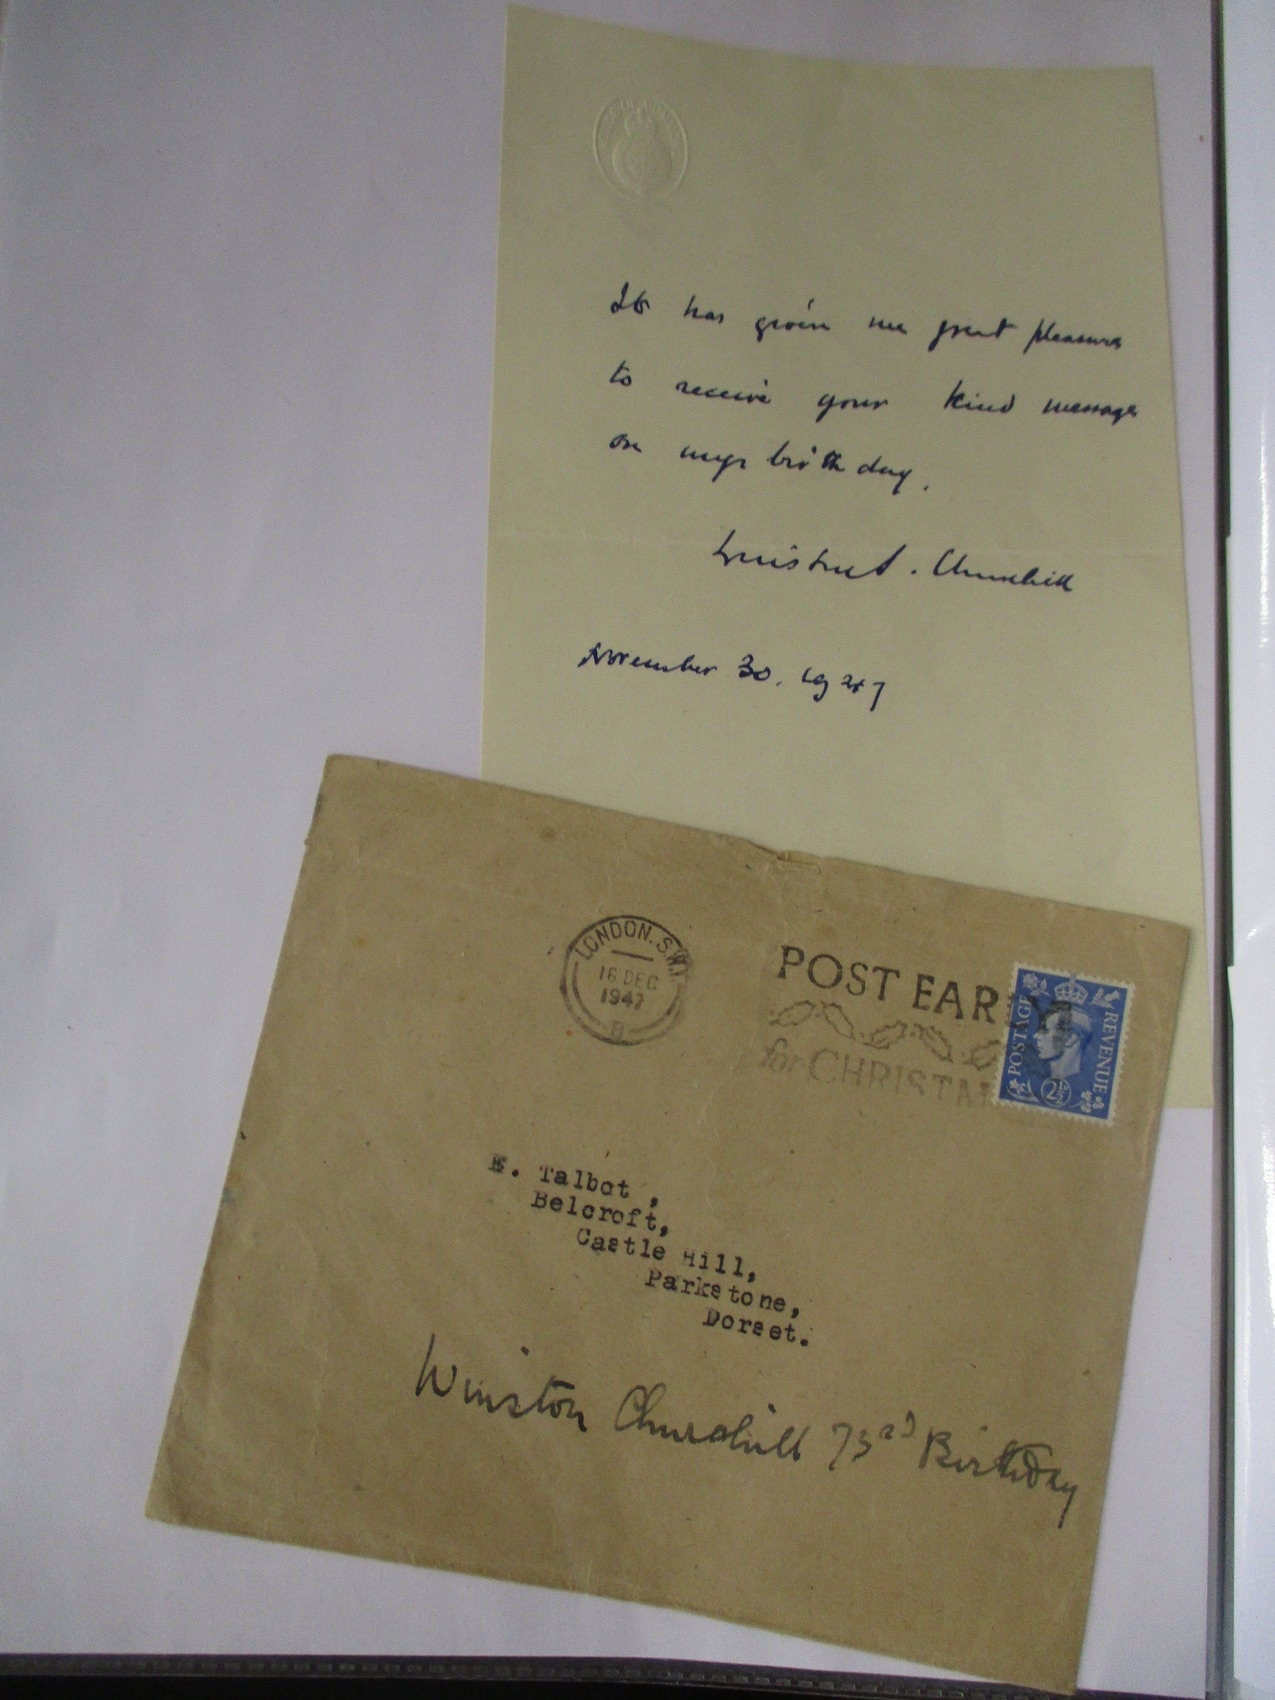 It has given me great pleasure
to receive your kind message
on my birthday.
Winston S. Churchill
November 30. 1947
LONDON. S.W.1
16 DEC
1947
B
POST EARLY
for CHRISTMA
POSTAGE
REVENUE
2½
E. Talbot ,
Belcroft,
Castle Hill,
Parkstone,
Dorset.
Winston Churchill 73rd Birthday